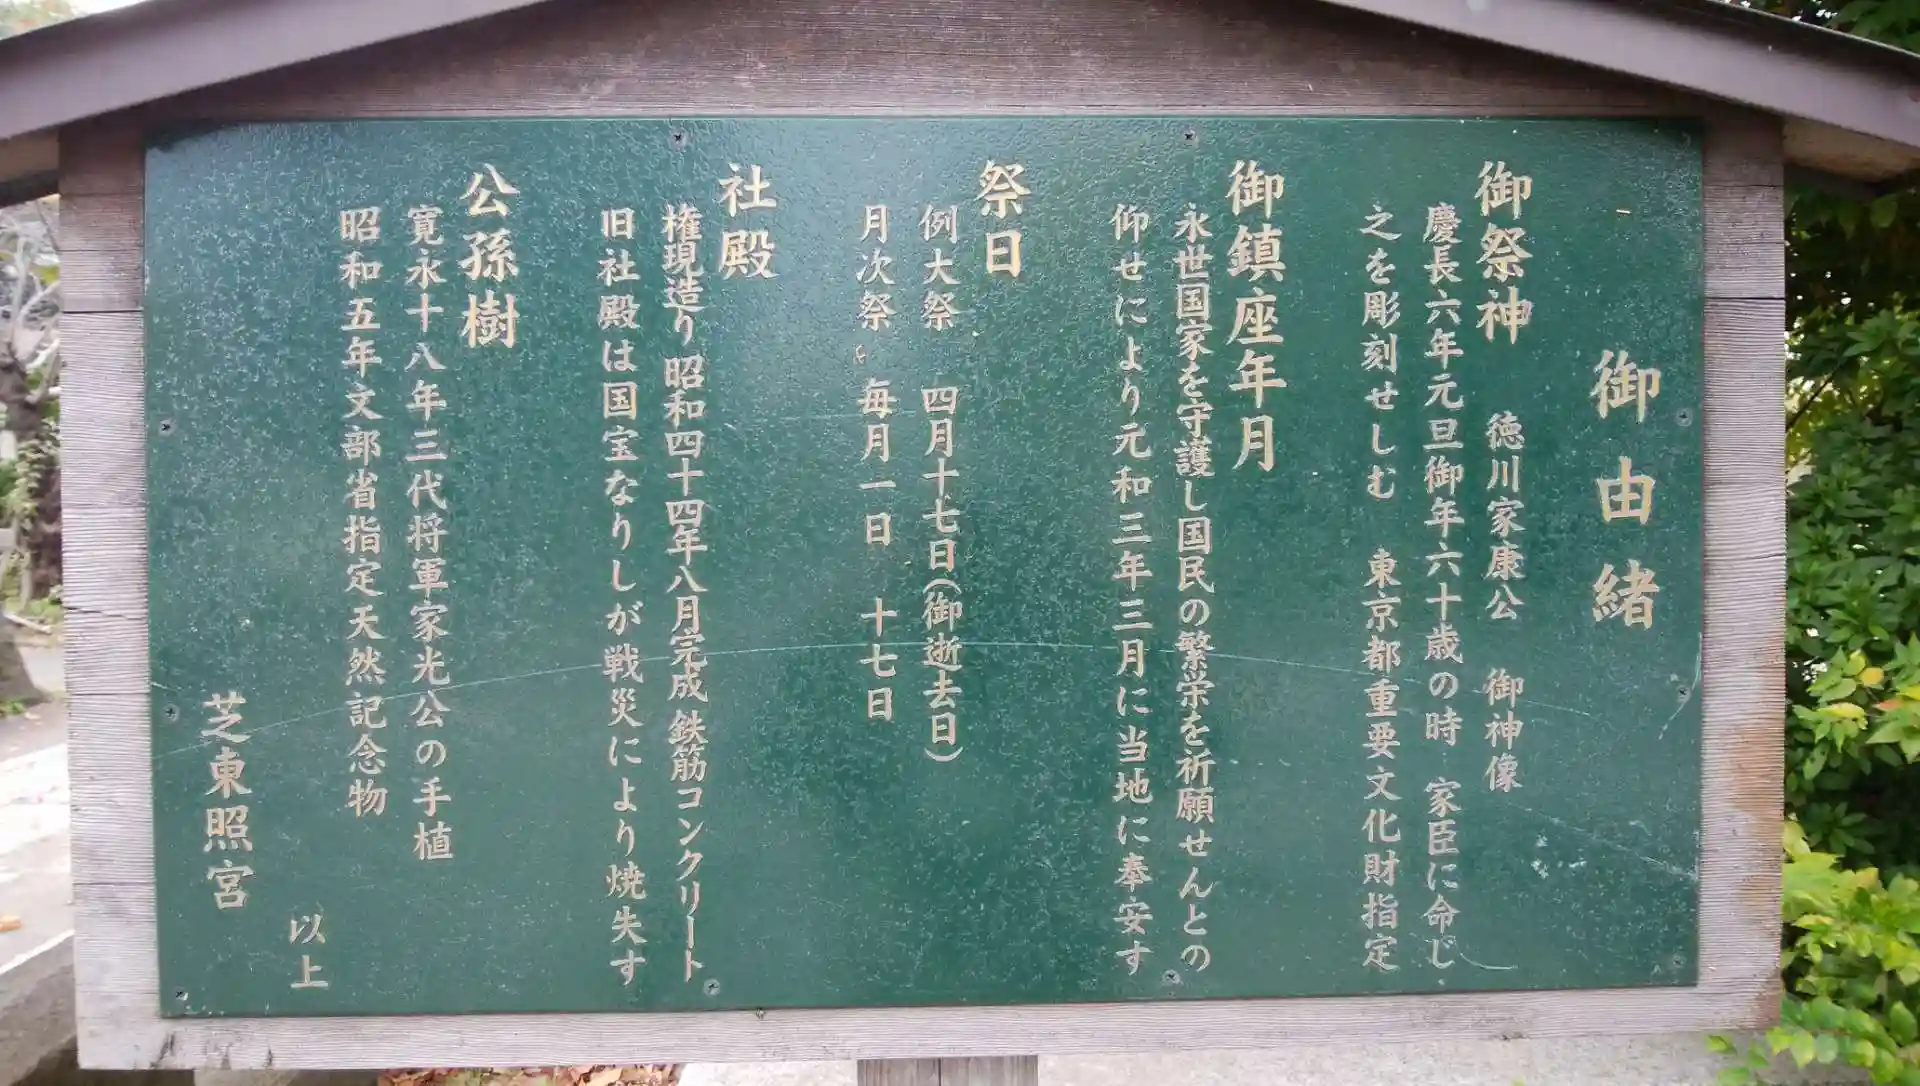 御由緒
御祭神　徳川家康公　御神像
慶長六年元旦御年六十歳の時　家臣に命じ
之を彫刻せしむ　東京都重要文化財指定
御鎮座年月
永世国家を守護し国民の繁栄を祈願せんとの
仰せにより元和三年三月に当地に奉安す
祭日
例大祭　四月十七日(御逝去日)
月次祭　毎月一日　十七日
社殿
権現造り昭和四十四年八月完成鉄筋コンクリート
旧社殿は国宝なりしが戦災により焼失す
公孫樹
寛永十八年三代将軍家光公の手植
昭和五年文部省指定天然記念物
以上
芝東照宮